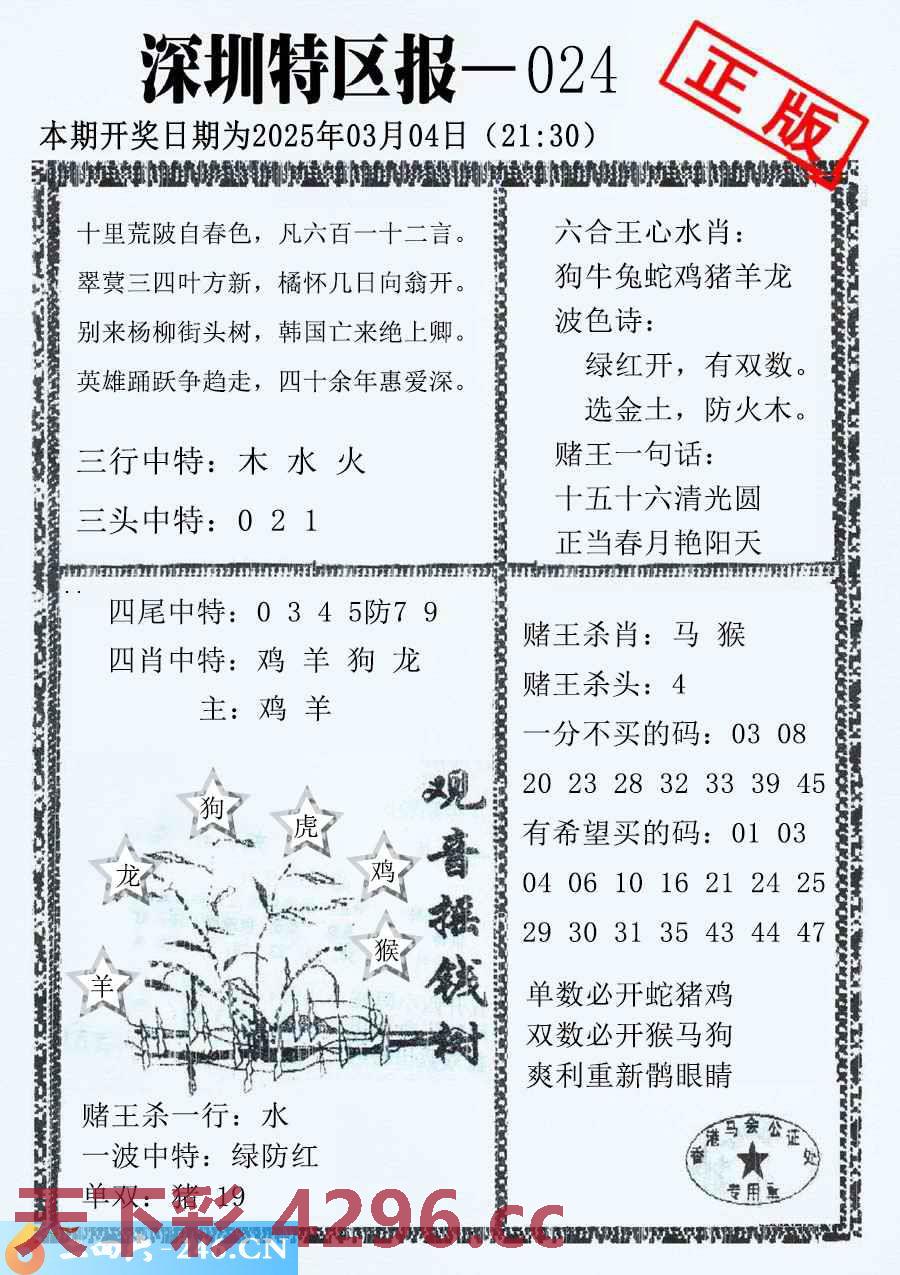 深圳特区报—024
正版
本期开奖日期为2025年03月04日（21:30）
十里荒陂自春色，凡六百一十二言。
翠蓂三四叶方新，橘怀几日向翁开。
别来杨柳街头树，韩国亡来绝上卿。
英雄踊跃争趋走，四十余年惠爱深。
三行中特：木 水 火
三头中特：0 2 1
六合王心水肖：
狗牛兔蛇鸡猪羊龙
波色诗：
绿红开，有双数。
选金土，防火木。
赌王一句话：
十五十六清光圆
正当春月艳阳天
四尾中特：0 3 4 5防7 9
四肖中特：鸡 羊 狗 龙
主：鸡 羊
狗
虎
龙
鸡
猴
羊
观音摇钱树
赌王杀一行：水
一波中特：绿防红
单双：猪 19
赌王杀肖：马 猴
赌王杀头：4
一分不买的码：03 08
20 23 28 32 33 39 45
有希望买的码：01 03
04 06 10 16 21 24 25
29 30 31 35 43 44 47
单数必开蛇猪鸡
双数必开猴马狗
爽利重新鹘眼睛
香港马会公证处
专用章
天下彩 4296.cc
-246.CN